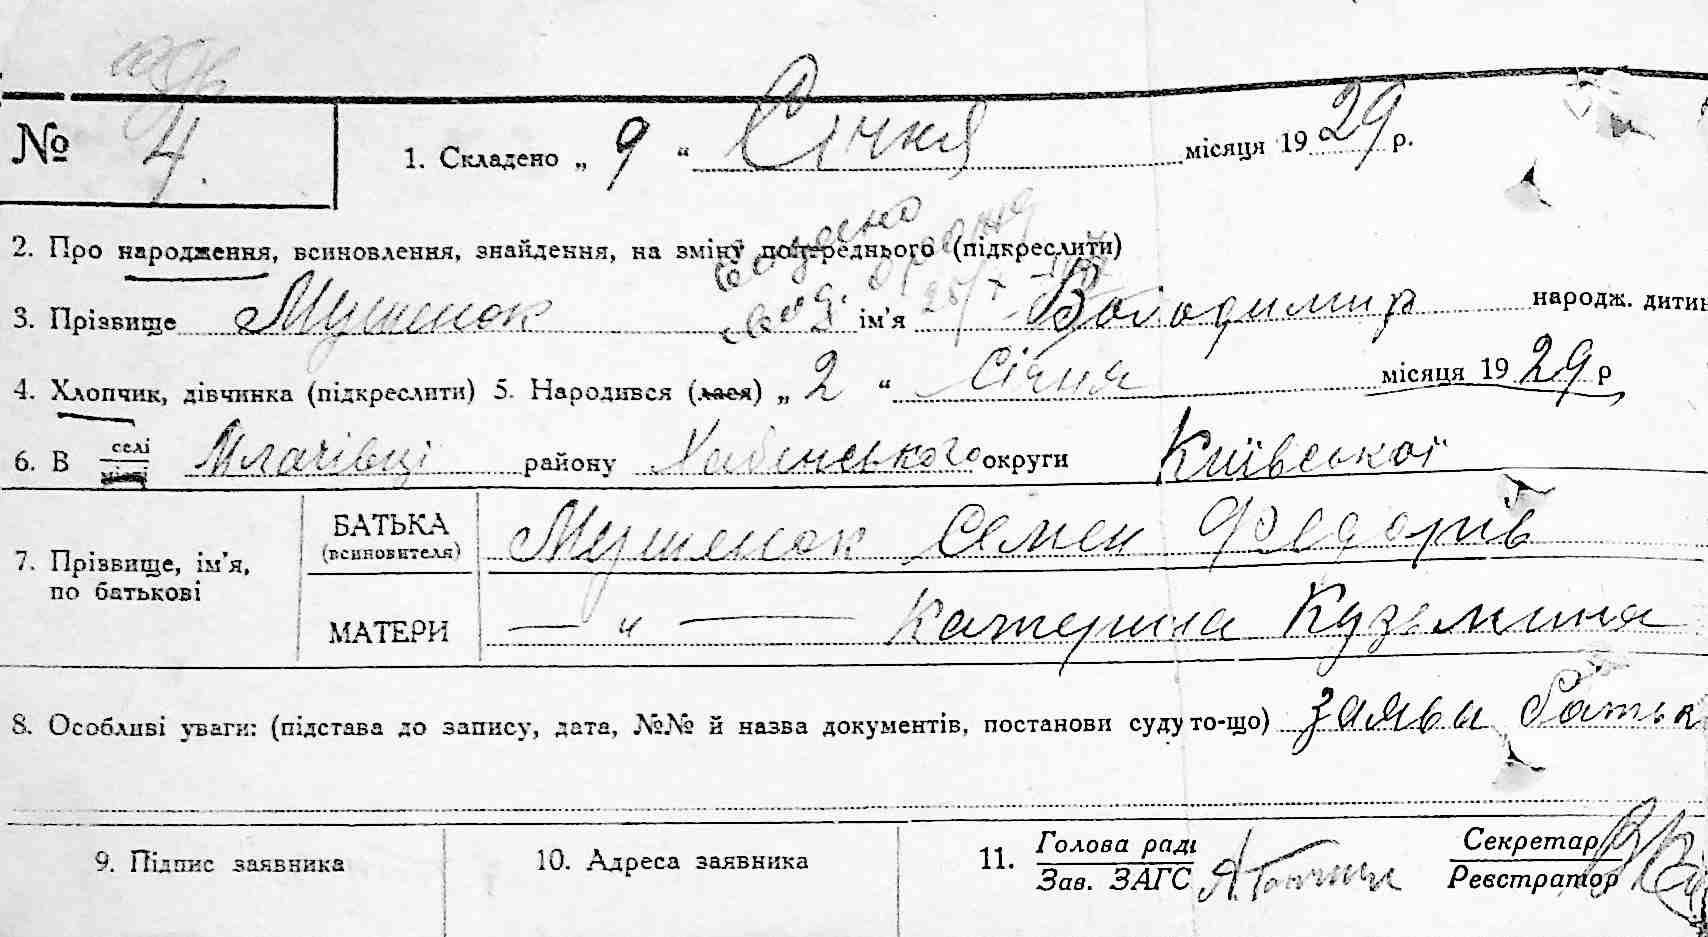 № 4. 1. Складено „ 9 “ Січня місяця 1929 р.
2. Про народження, всиновлення, знайдення, на зміну попереднього (підкреслити)
3. Прізвище Мушенок ім'я Володимир народж. дитин
4. Хлопчик, дівчинка (підкреслити) 5. Народився (лася) „ 2 “ Січня місяця 1929 р
6. В селі місті Млачівці району Хабенського округи Київської
7. Прізвище, ім'я, по батькові БАТЬКА (всиновителя) Мушенок Семен Федорів
МАТЕРИ — „ — Катерина Кузьмина
8. Особливі уваги: (підстава до запису, дата, №№ й назва документів, постанови суду то-що) заява батьк
9. Підпис заявника 10. Адреса заявника 11. Голова ради Секретар
Зав. ЗАГС Реєстратор